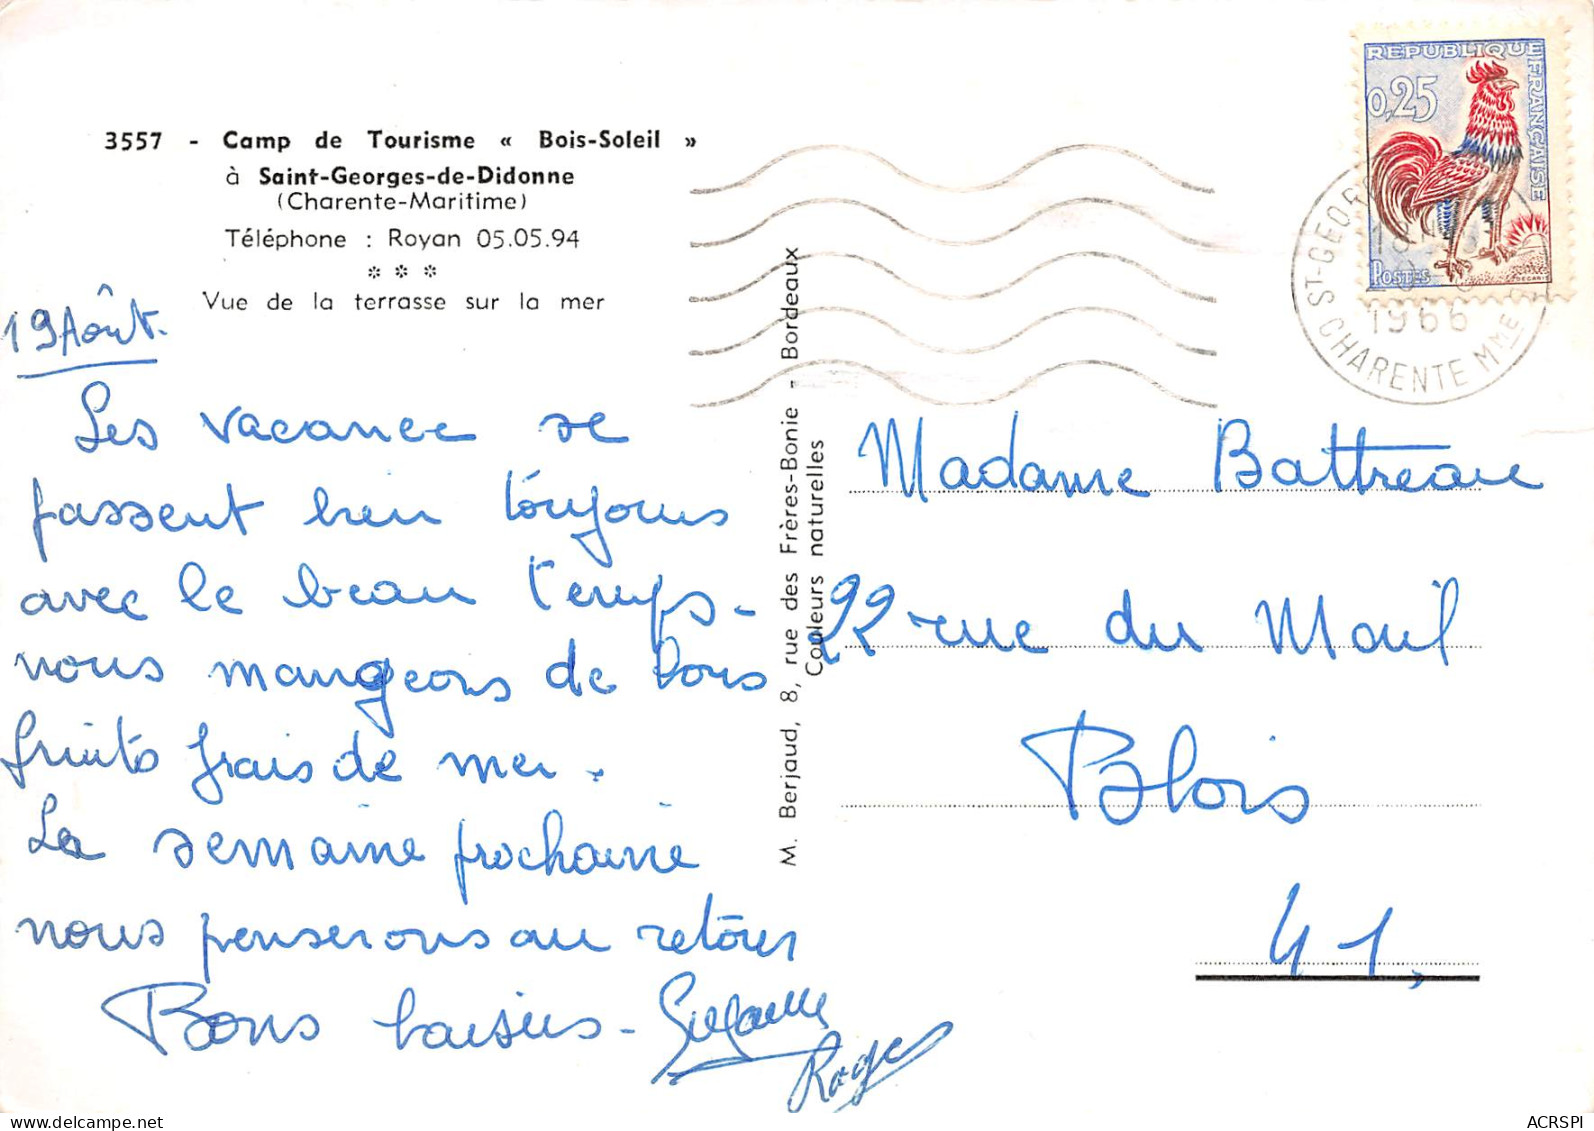 3557 - Camp de Tourisme « Bois-Soleil »
à Saint-Georges-de-Didonne
(Charente-Maritime)
Téléphone : Royan 05.05.94
* * *
Vue de la terrasse sur la mer
19 Août.
Les vacance se
passent bien toujours
avec le beau temps -
nous mangeons de bons
fruits frais de mer.
La semaine prochaine
nous penserons au retour
Bons baisers -
Roger
M. Berjaud, 8, rue des Frères-Bonie - Bordeaux
Couleurs naturelles
REPUBLIQUE
FRANÇAISE
0,25
POSTES
ST-GEOR
1966
CHARENTE MME
Madame Battreau
22 rue du Mail
Blois
41,
ACRSPI